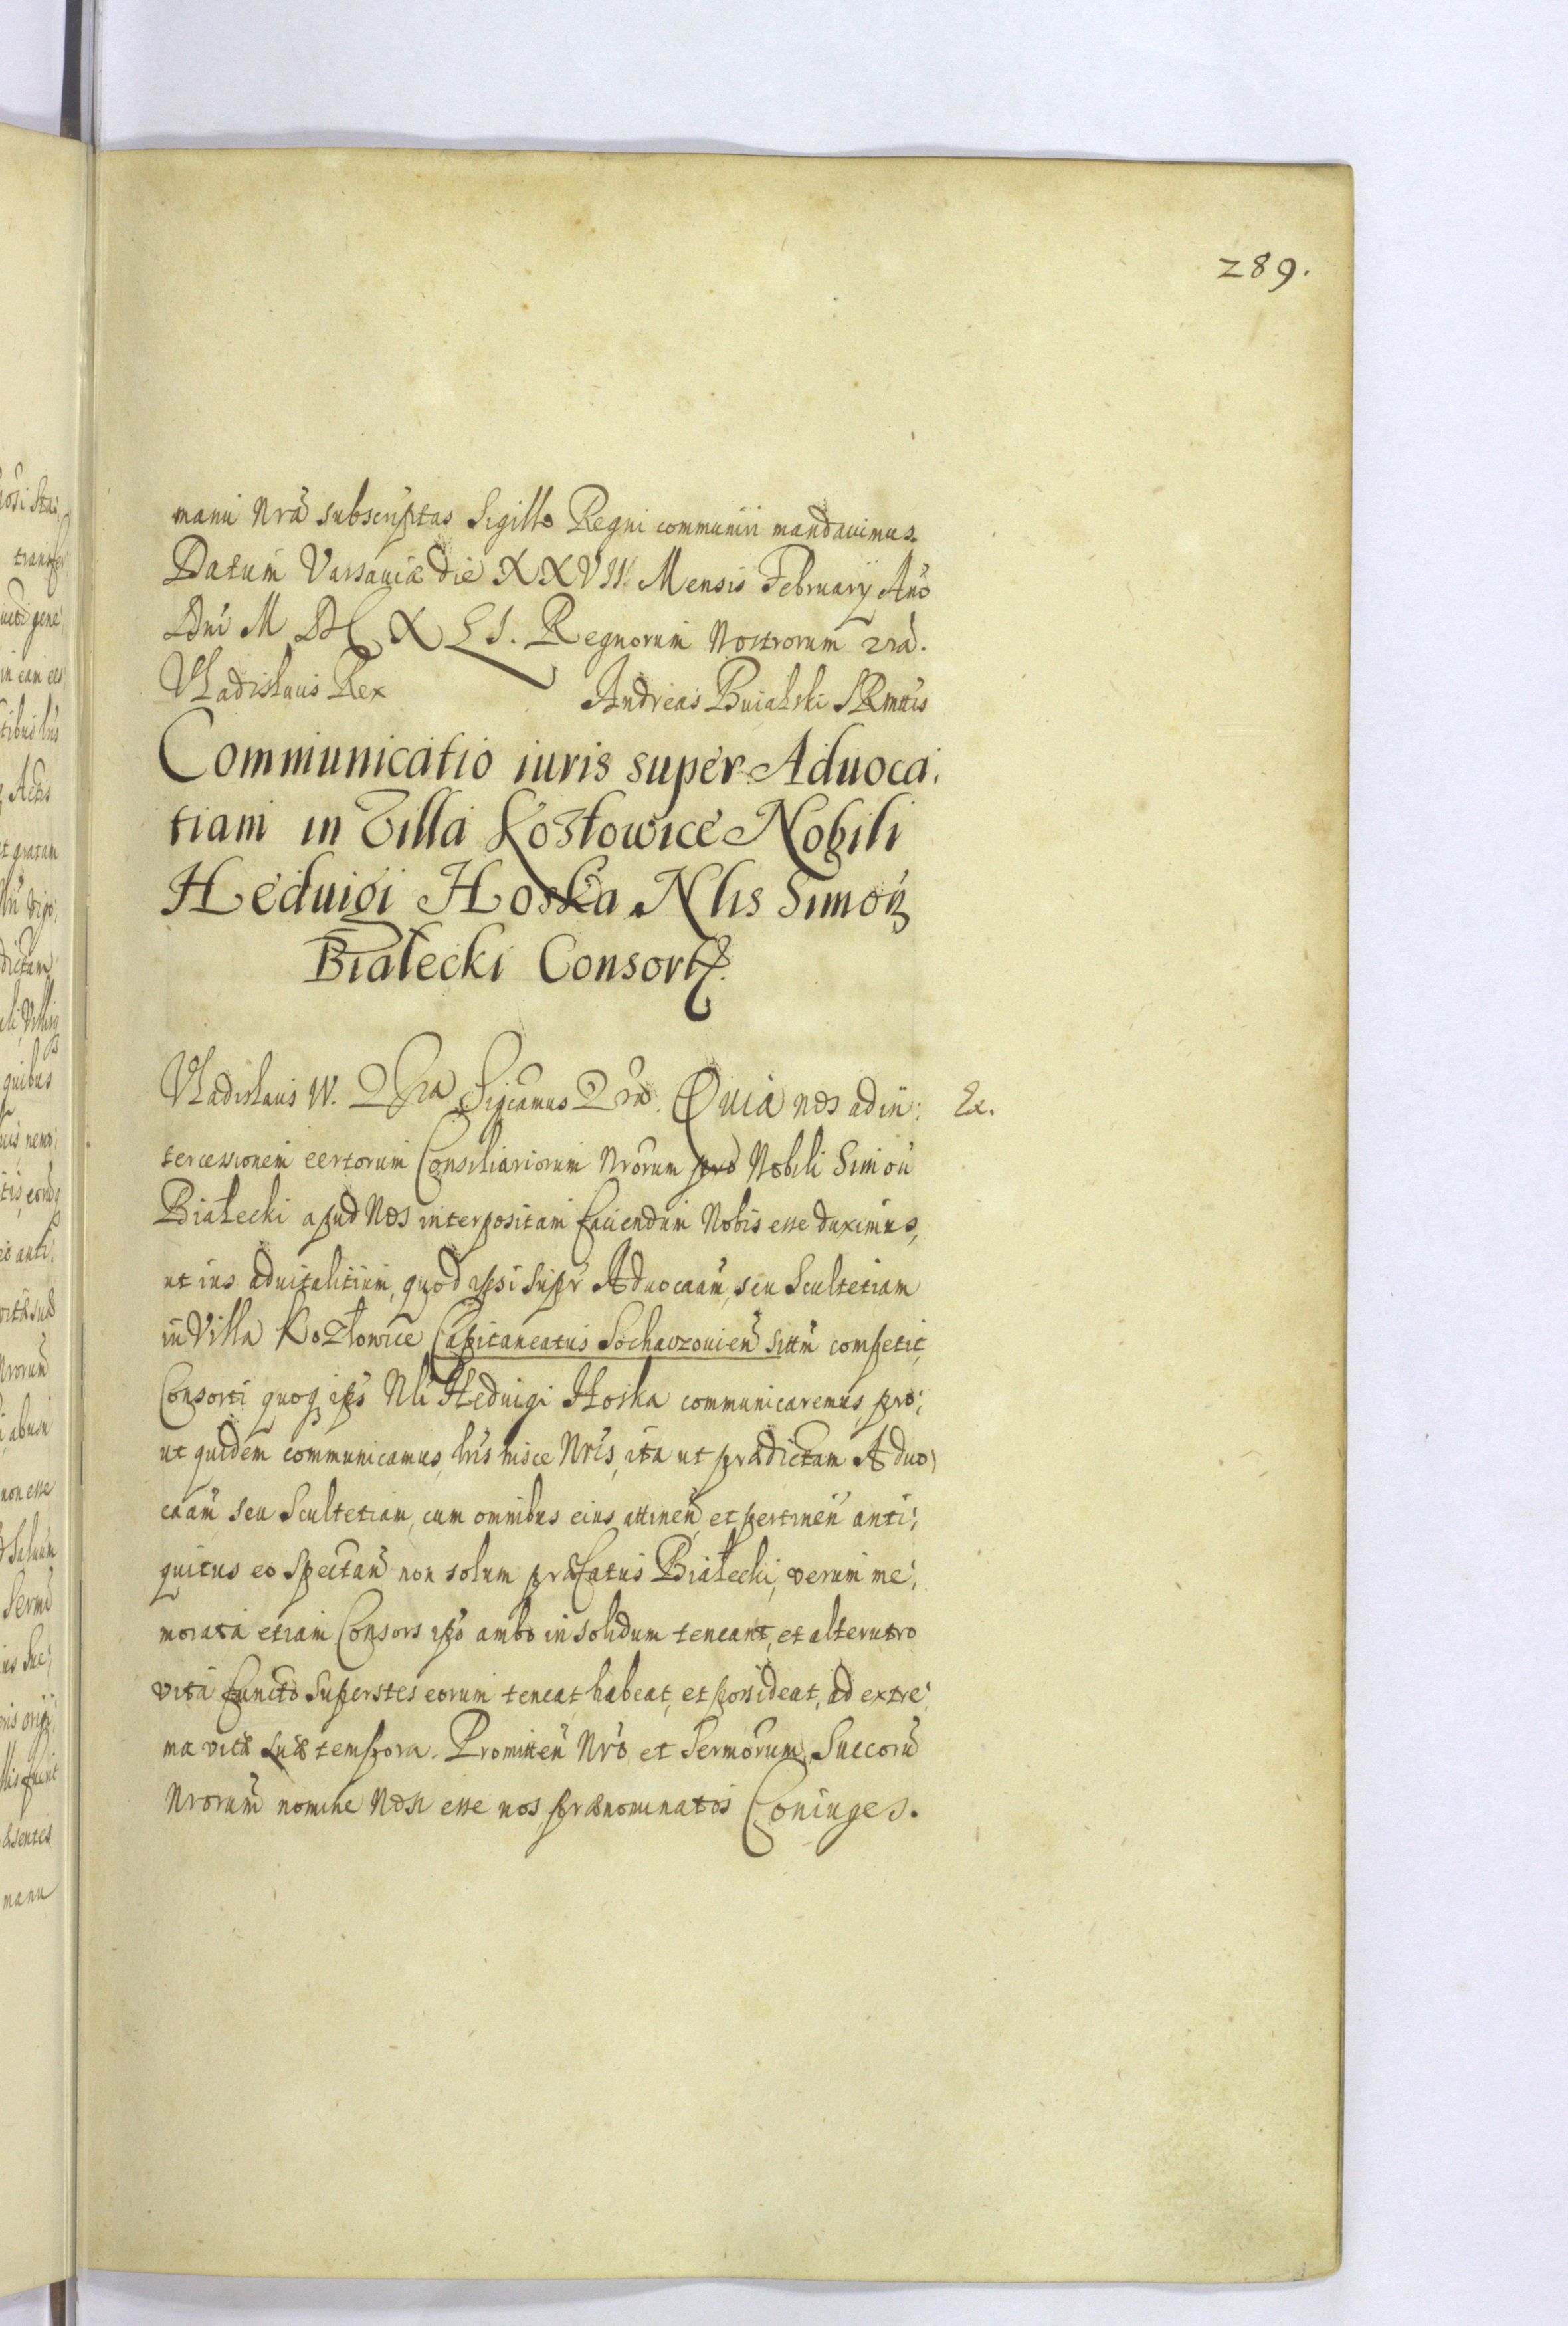 289.
manu Nrã subscriptas Sigillo Regni communiri mandauimus.
Datum Varsauiæ die XXVII. Mensis February Año
Dni M DC X LI. Regnorum Nostrorum zrã.
Vladislaus Rex Andreas Buialski SRMtis
Communicatio iuris super Aduoca:
tiam in Villa Kozłowice Nobili
Heduigi Hoska Nlis Simoñ
Białecki Consorti.
Vladislaus IV. Significamus Quia nos ad in: Ex.
tercessionem certorum Consiliariorum Nrorum pro Nobili Simoñ
Białecki apud Nos interpositam faciendum Nobis esse duximus,
ut ius aduitalitium, quod ipsi supr Aduocaam, seu Scultetiam
in Villa Kozłowice Capitaneatus Sochaczouien sittm competit,
Consorti quoq ips Nli Heduigi Hoska communicaremus, pro:
ut quidem communicamus, lris hisce Nris, ita ut prædictam Aduo:
caam seu Scultetiam, cum omnibus eius attineñ et pertineñ anti:
quitus eo spectañ non solum præfatus Białecki, verum me:
morata etiam Consors ips ambo in solidum teneant, et alterutro
vita functo superstes eorum teneat, habeat, et possideat, ad extre:
ma vitæ suæ tempora. Promitteñ Nro et Sermorum Succorũ
Nrorum nomine Non esse nos prænominatos Coniuges.